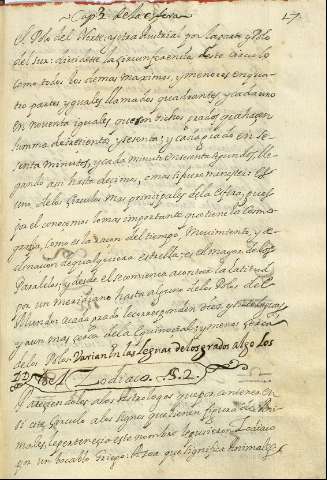 Cap. de la esfera 17
el Polo del Norte, y otra Austral por la parte y Polo
del Sur: dividese la circunferencia de este circulo
como todos los demas maximos, y menores en qua-
tro partes yguales llamados quadrantes, y cada uno
en noventa iguales, que son dichos grados, que hacen
summa de trescientos y sesenta; y cada grado en se-
senta minutos, y cada minuto en sesenta segundos, lle-
gando asi hasta decimos, o mas si fuere
uno de los circulos mas principales de la esfera, pues
por el conocemos lo mas importante que tiene la Como-
grafia, como es la razon del tiempo, Movimiento, y de-
clinacion de qualquiera estrella: es el mayor de los
Paralelos, y desde el se comienza a contar la latitud
por un Meridiano hasta alguno de los Polos del
Mundo: a cada grado le corresponden diez y
y aun mas cerca de la Equinoccial, y menos cerca
de los Polos. Varian en las leguas de los grados algo los
Del Zodiaco. §. 2.
Atendiendo los Astrologos
este circulo a los signos que tienen figura de Ani-
males, le pertenecio este nombre le pusieron Zodiaco
por un vocablo Griego que significa Animales;